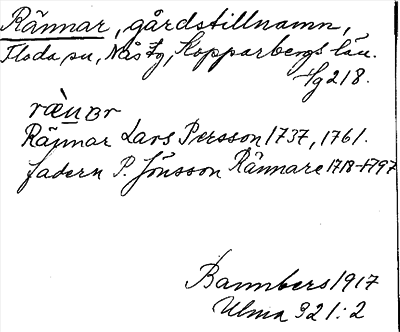 Rännar, gårdstillnamn,
Floda sn, Nås Fg, Kopparbergs län.
Hg 218.
Rännar Lars Persson 1737, 1761.
fadern P. Jönsson Rännare 1718-1797
Bannbers 1917
Ulma 321:2